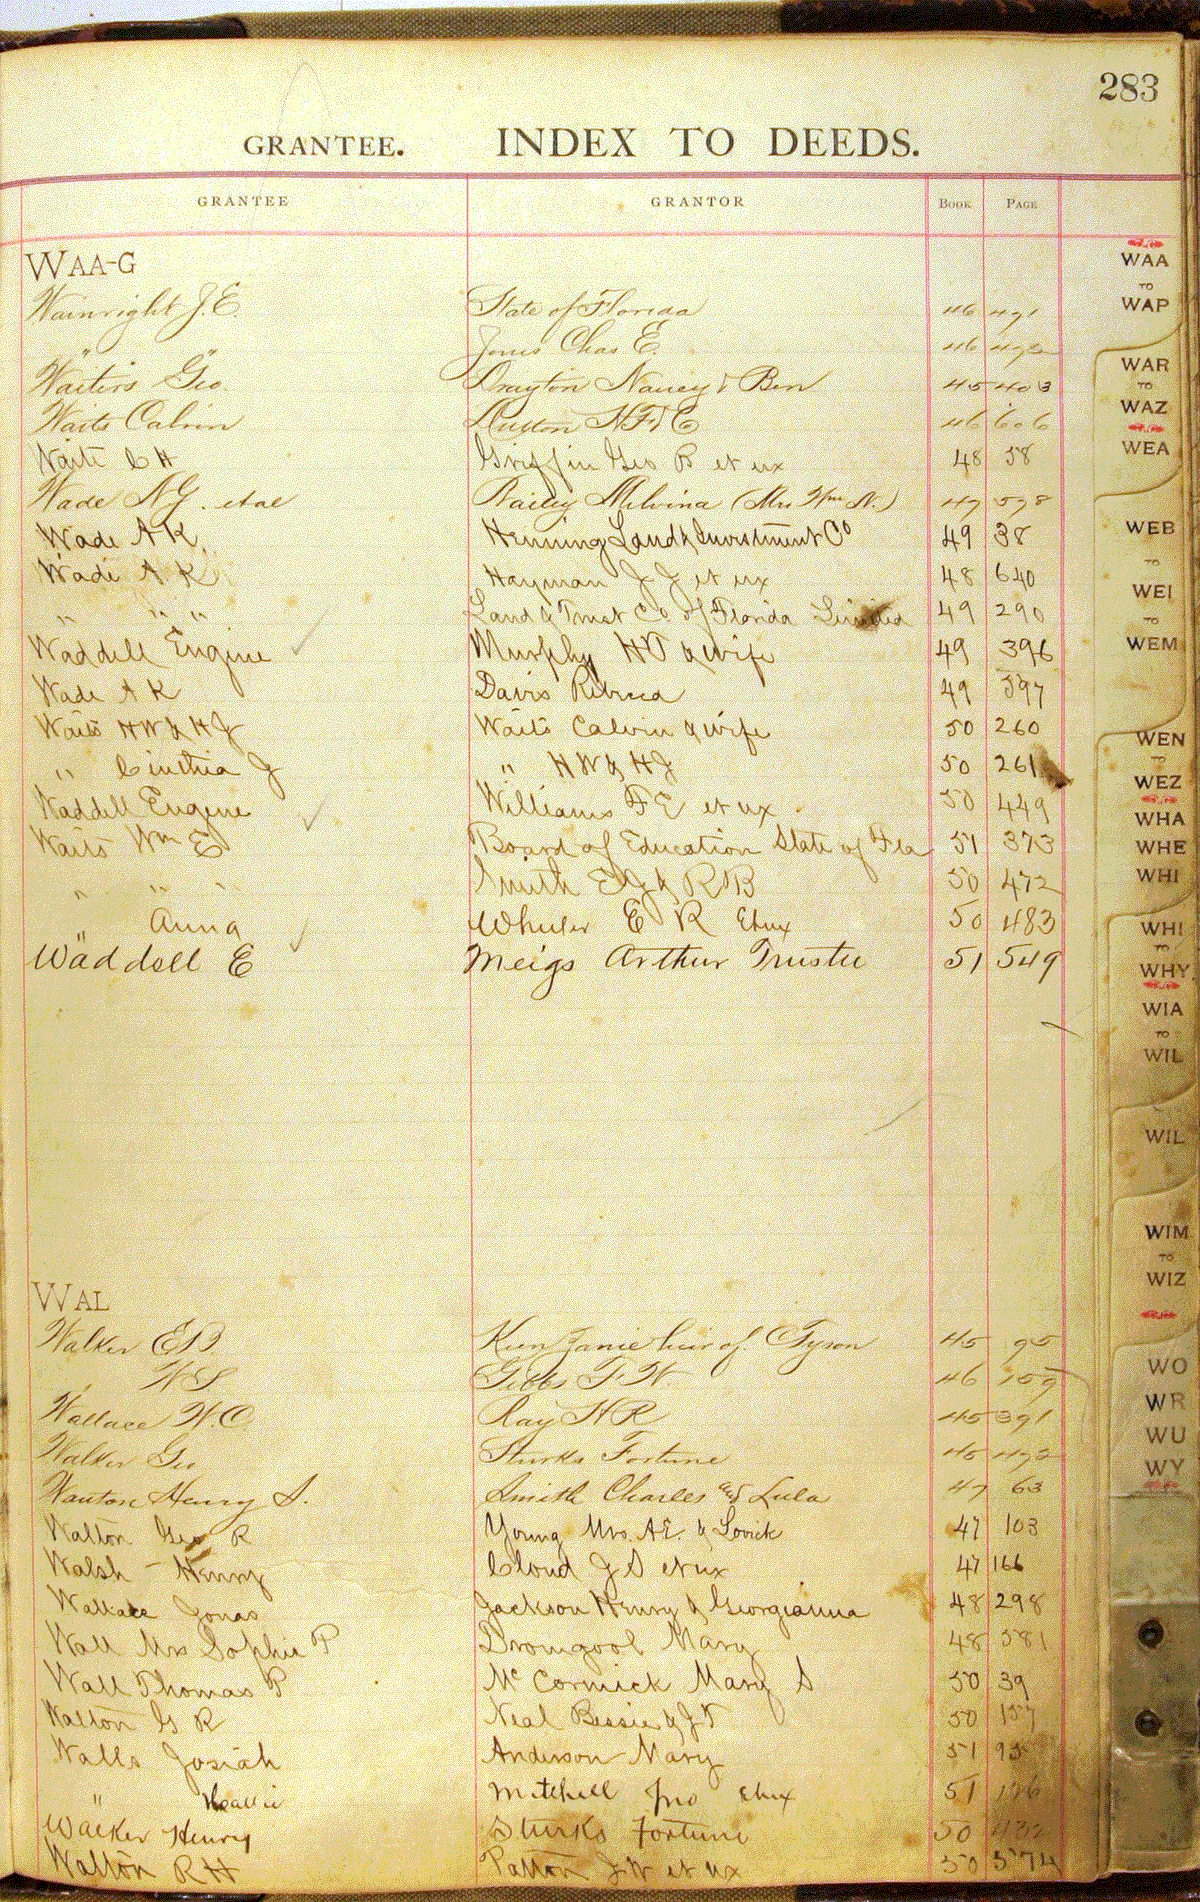 283
GRANTEE. INDEX TO DEEDS.
GRANTEE GRANTOR BOOK PAGE
WAA-G
Wainright J. E. State of Florida 46 491
" " Jones Chas E. 46 492
Waiters Geo. Drayton Nancy & Ben 45 403
Waits Calvin Dutton H F & E 46 606
Waite C H Griffin Geo B et ux 48 58
Wade N G. et al Bailey Melvina (Mrs Wm N.) 47 578
Wade A K. Henning Land & Investment Co 49 38
Wade A K Hayman J J et ux 48 640
" " " Land & Trust Co of Florida Limited 49 290
Waddell Eugine Murphy H O & wife 49 396
Wade A K Davis Rebecca 49 397
Waits H W & H J Waits Calvin & wife 50 260
" Cinthia J " H W & H J 50 261
Waddell Eugine Williams F E et ux 50 449
Waits Wm E Board of Education State of Fla 51 373
" " " Smith E J & R B 50 472
Anna Wheeler E R Etux 50 483
Waddell E Meigs Arthur Trustee 51 549
WAL
Walker E B. Janie heir of. Tyson 45 95
" W S Gibbs F. W. 46 159
Wallace W. C. Ray H R 45 391
Walker Geo Sturks Fortune 45 492
Wanton Henry S. Smith Charles and Lula 47 63
Walton Geo R Young Mrs. A E. & Lovick 47 103
Walsh Henry Cloud J S et ux 47 166
Wallace Jonas Jackson Henry & Georgianna 48 298
Wall Mrs Sophie P Dromgool Mary 48 581
Wall Thomas P McCormick Mary S 50 39
Walton G R Neal Bessie & J T 50 157
Walls Josiah Anderson Mary 51 95
" Mitchell Jno Etux 51 196
Walker Henry Sturks Fortune 50 432
Walton R H Patton J W et ux 50 574
WAA
TO
WAP
WAR
TO
WAZ
WEA
WEB
TO
WEI
TO
WEM
WEN
TO
WEZ
WHA
WHE
WHI
WHI
TO
WHY.
WIA
TO
WIL
WIL
WIM
TO
WIZ
WO
WR
WU
WY